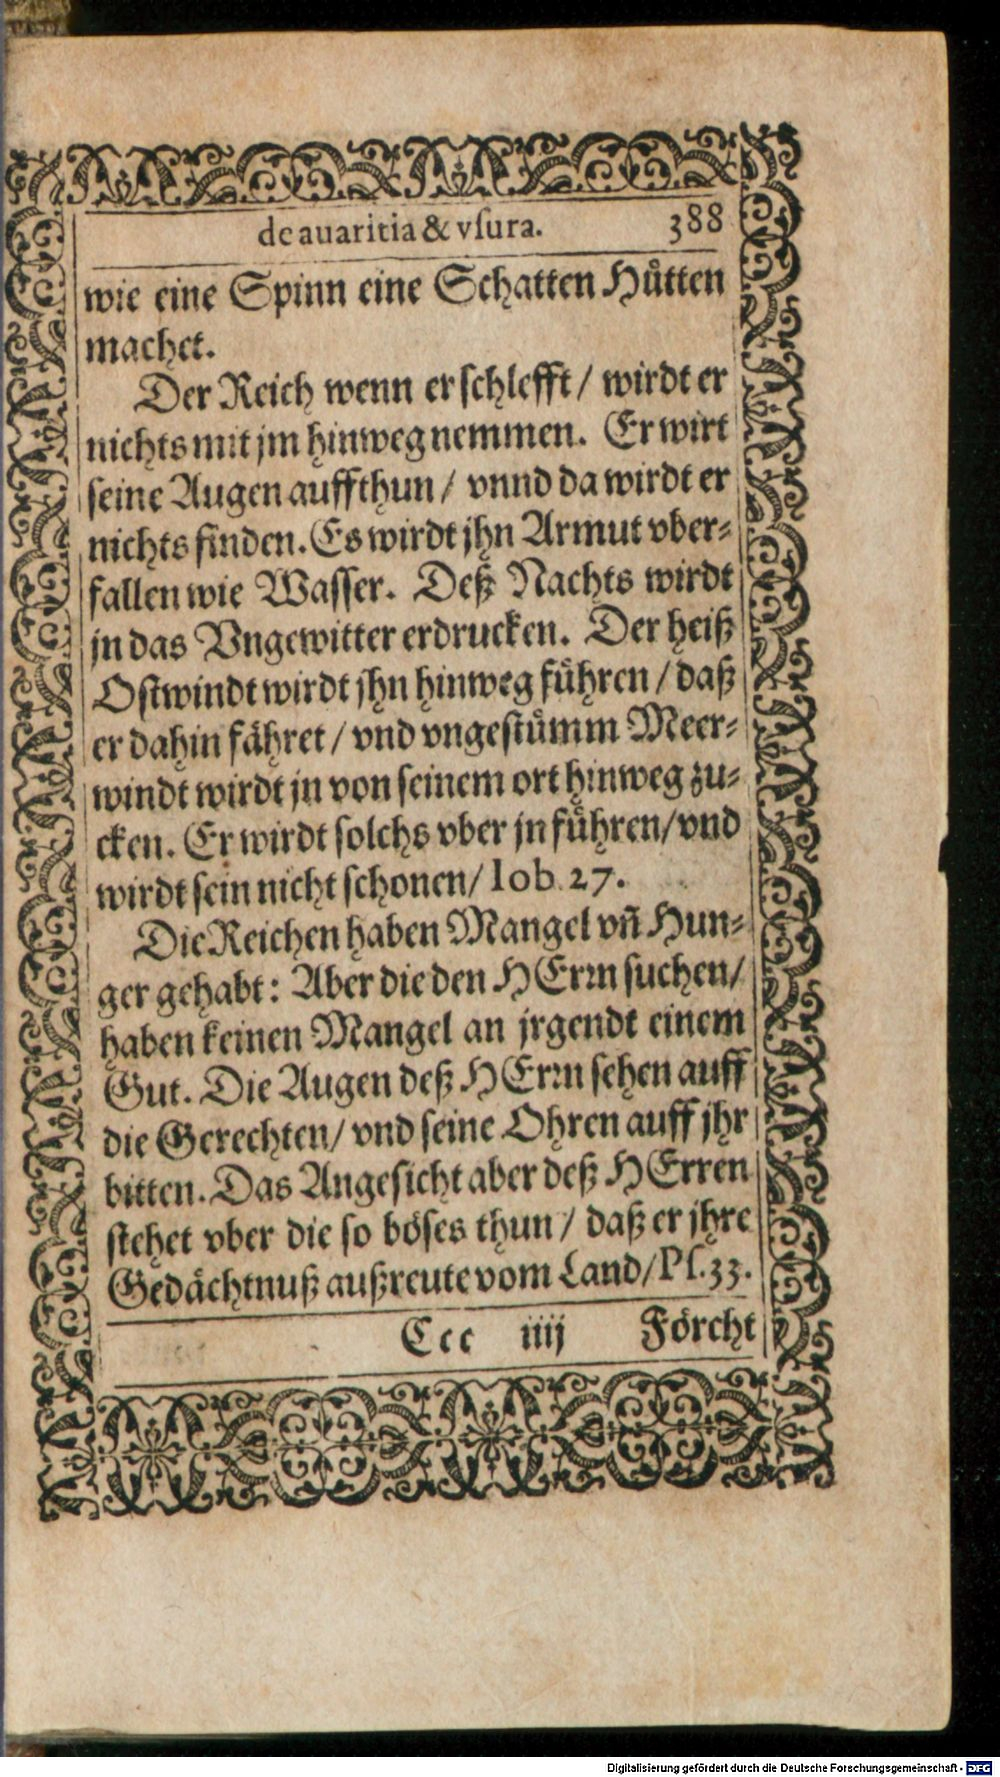 de auaritia & vſura. 388
wie eine Spinn eine Schatten Huͤtten
machet.
Der Reich wenn er ſchlefft / wirdt er
nichts mit jm hinweg nemmen. Er wirt
ſeine Augen auffthun / vnnd da wirdt er
nichts finden. Es wirdt jhn Armut vber⸗
fallen wie Waſſer. Deß Nachts wirdt
jn das Vngewitter erdrucken. Der heiß
Oſtwindt wirdt jhn hinweg fuͤhren / daß
er dahin faͤhret / vnd vngeſtuͤmm Meer⸗
windt wirdt jn von ſeinem ort hinweg zu⸗
cken. Er wirdt ſolchs vber jn fuͤhren / vnd
wirdt ſein nicht ſchonen / Iob 27.
Die Reichen haben Mangel vñ Hun⸗
ger gehabt: Aber die den HErꝛn ſuchen /
haben keinen Mangel an jrgendt einem
Gut. Die Augen deß HErꝛn ſehen auff
die Gerechten / vnd ſeine Ohren auff jhr
bitten. Das Angeſicht aber deß HErren
ſtehet vber die ſo boͤſes thun / daß er jhre
Gedaͤchtnuß außreute vom Land / Pſ. 33.
Ccc iiij Foͤrcht
Digitalisierung gefördert durch die Deutsche Forschungsgemeinschaft - DFG